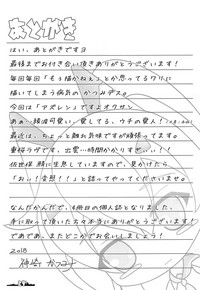 あとがき
はい、あとがきですヨ
最後までお付き合い頂きありがとうございます!
毎回毎回「もう描かねぇ」とか思ってるワリに
描いてしまう病気の かつみデス。
今回は「マズレン」ですよオクサン
あぁ…綾波可愛い。愛してる。ウチの愛人!
最近は、ちょっと離れ気味ですが頑張ってます。
重桜ラヴです。出雲…時間かかりすぎぃ…!!
佐世保 鯖に生息していますので、見かけたら
「おっ!変態!!」と謗ってやってくださいませ。
なんだかんだで、4冊目の個人誌となりました。
手に取って頂いた方々本当にありがとうございます!
であであ、またどこかでお会いしましょう!
2018